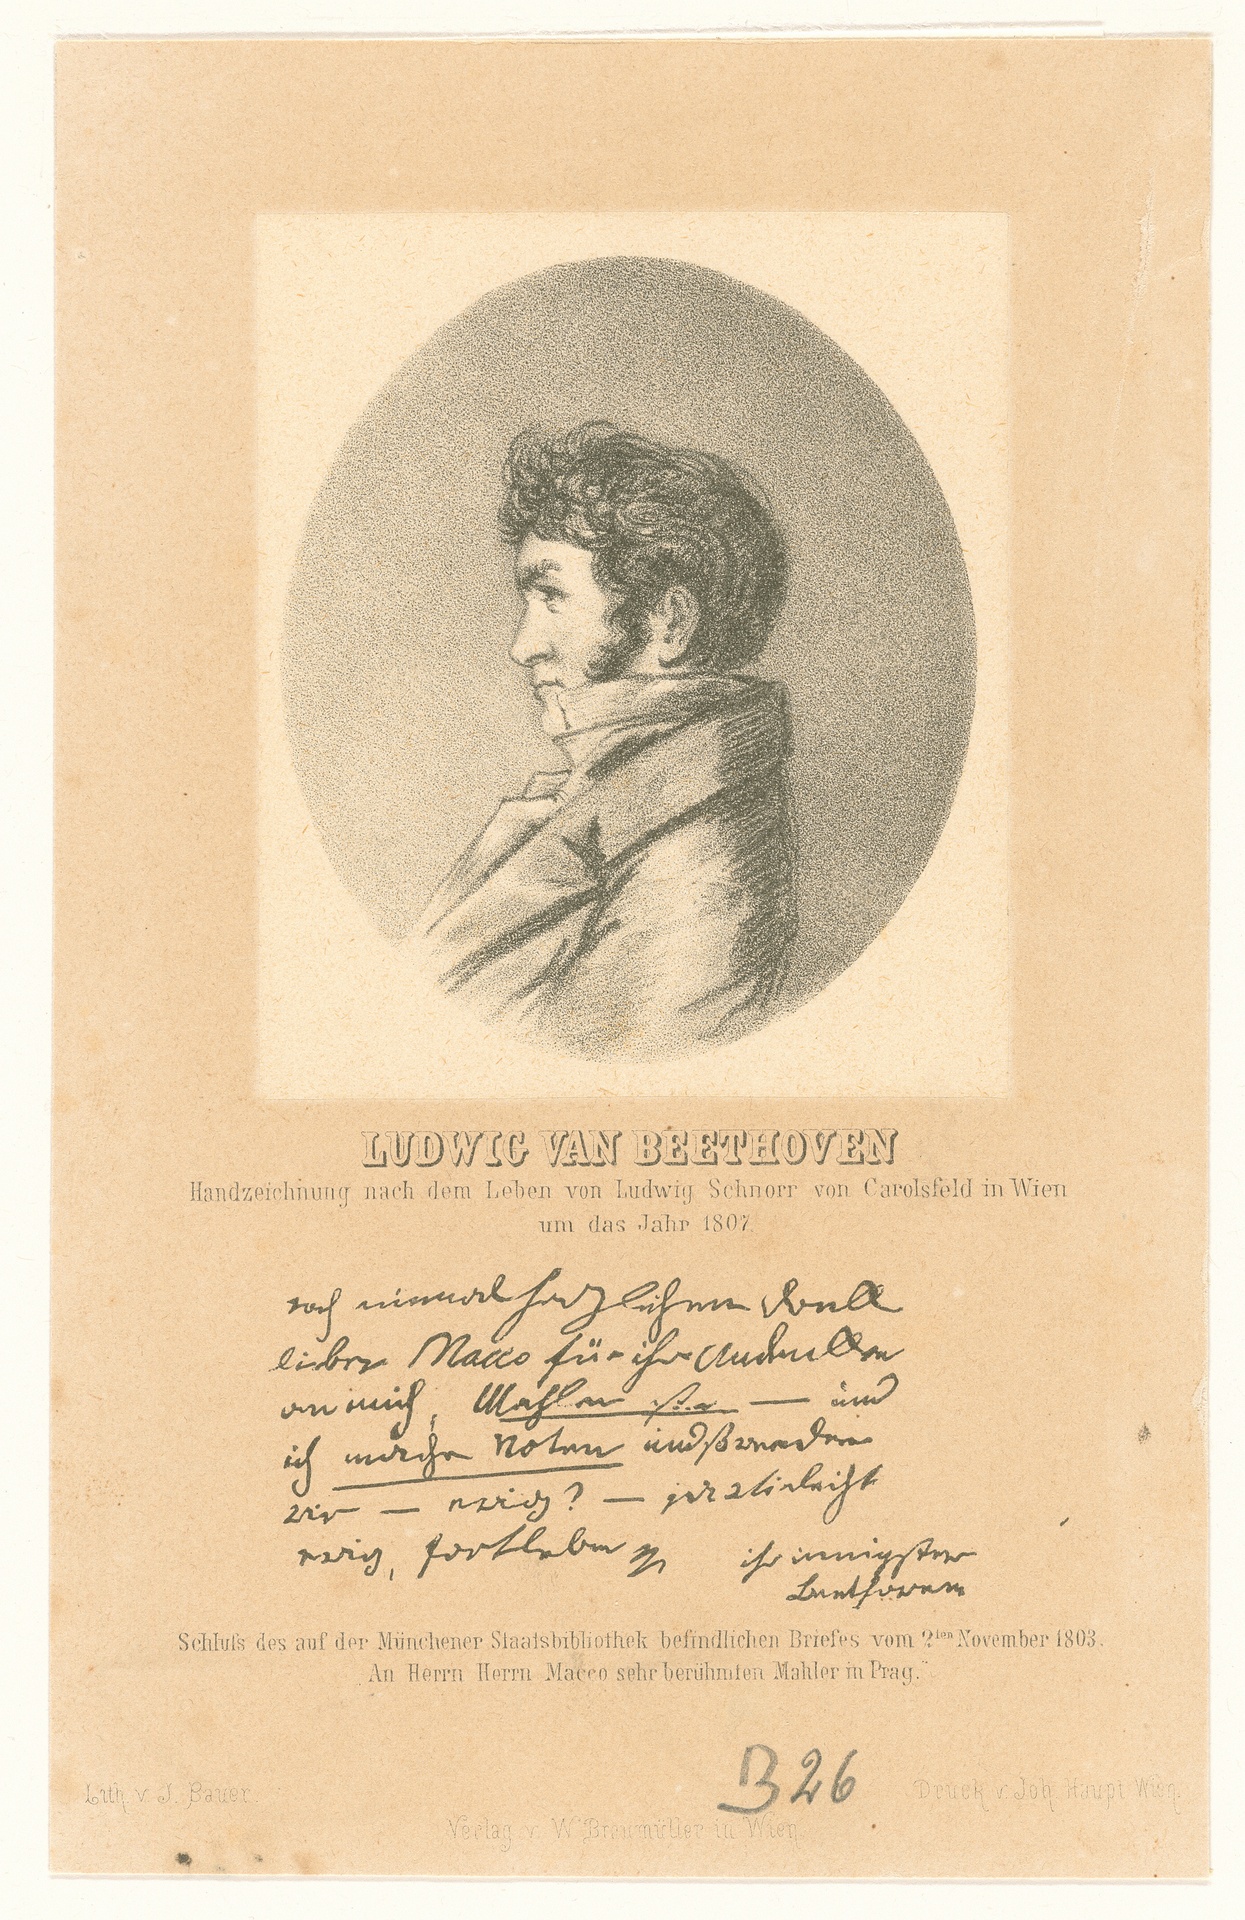 LUDWIG VAN BEETHOVEN
Handzeichnung nach dem Leben von Ludwig Schnorr von Carolsfeld in Wien
um das Jahr 1807.
noch einmal herzlichen Dank
lieber Macco für ihr Andenken
an mich, Mahlen sie — und
ich mache Noten und so werden
wir — ewig? — ja vieleicht
ewig, fortleben
ihr innigster
Beethowen
Schluſs des auf der Münchener Staatsbibliothek befindlichen Briefes vom 2ten November 1803.
„An Herrn Herrn Macco sehr berühmten Mahler in Prag.“
B 26
Lith. v. J. Bauer.
Druck v. Joh. Haupt Wien.
Verlag v. W. Braumüller in Wien.